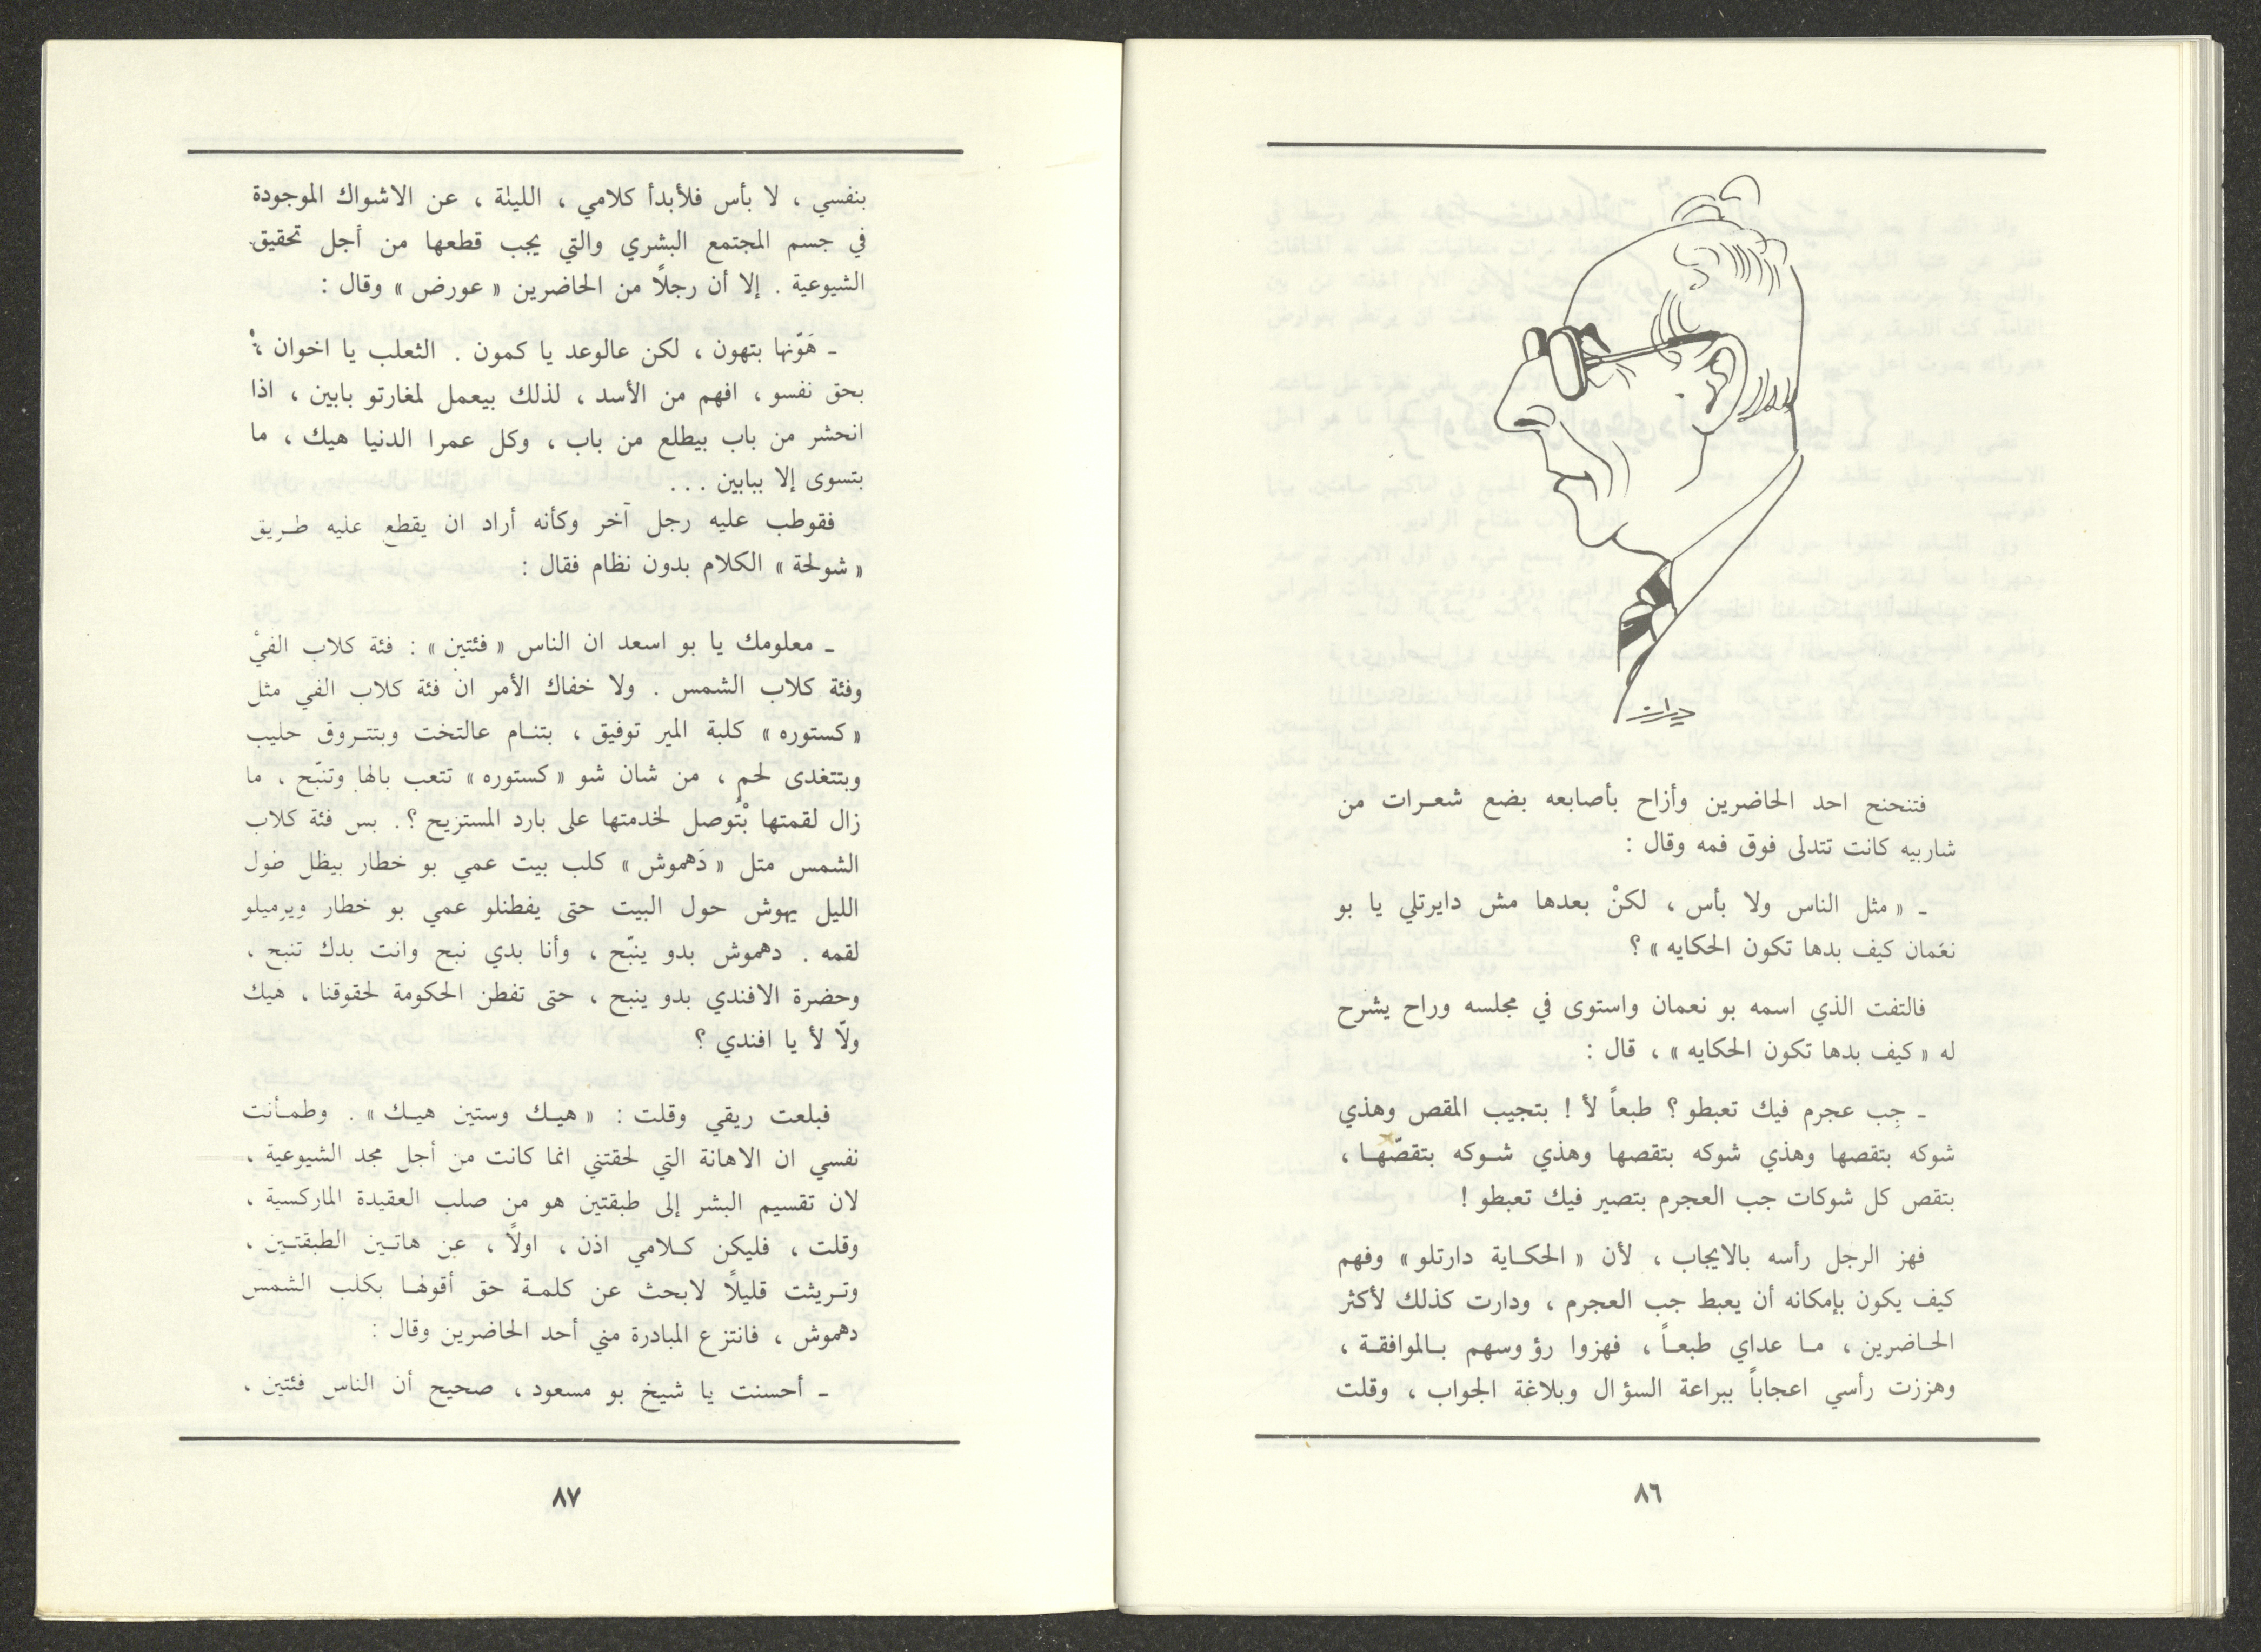 فتنحنح احد الحاضرين وأزاح بأصابعه بضع شعـرات من
شاربيه كانت تتدلى فوق فمه وقال :
ـ « مثل الناس ولا بأس ، لكنْ بعدها مش دايرتلي يا بو
نعمان كيف بدها تكون الحكايه » ؟
فالتفت الذي اسمه بو نعمان واستوى في مجلسه وراح يشرح
له « كيف بدها تكون الحكايه » ، قال :
ـ جِب عجرم فيك تعبطو ؟ طبعاً لأ ! بتجيب المقص وهذي
شوكه بتقصها وهذي شوكه بتقصها وهذي شـوكه بتقصّهـا ،
بتقص كل شوكات جب العجرم بتصير فيك تعبطو !
فهز الرجل رأسه بالايجاب ، لأن « الحكـاية دارتلو » وفهم
كيف يكون بإمكانه أن يعبط جب العجرم ، ودارت كذلك لأكثر
الحـاضرين ، مـا عداي طبعـاً ، فهزوا رؤوسهم بـالموافقـة ،
وهززت رأسي اعجاباً ببراعة السؤال وبلاغة الجواب ، وقلت
٨٦
بنفسي ، لا بأس فلأبدأ كلامي ، الليلة ، عن الاشواك الموجودة
في جسم المجتمع البشري والتي يجب قطعها من أجل تحقيق
الشيوعية . إلا أن رجلاً من الحاضرين « عورض » وقال :
ـ هَوّنها بتهون ، لكن عالوعد يا كمون . الثعلب يا اخوان ،
بحق نفسو ، افهم من الأسد ، لذلك بيعمل لمغارتو بابين ، اذا
انحشر من باب بيطلع من باب ، وكل عمرا الدنيا هيك ، ما
بتسوى إلا ببابين . . .
فقوطب عليه رجل آخر وكأنه أراد ان يقطع عليه طـريق
« شولحة » الكلام بدون نظام فقال :
ـ معلومك يا بو اسعد ان الناس « فئتين » : فئة كلاب الفيْ
وفئة كلاب الشمس . ولا خفاك الأمر ان فئة كلاب الفي مثل
« كستوره » كلبة المير توفيق ، بتنـام عالتخت وبتتـروق حليب
وبتتغدى لحم ، من شان شو « كستوره » تتعب بالها وتنبّح ، ما
زال لقمتها بْتُوصل لخدمتها على بارد المستزيح ؟. بس فئة كلاب
الشمس متل « دَهموش » كلب بيت عمي بو خطار بيظل طول
الليل يهوش حول البيت حتى يفطنلو عمي بو خطار ويرميلو
لقمه . دهموش بدو ينبّح ، وأنا بدي نبح وانت بدك تنبح ،
وحضرة الافندي بدو ينبح ، حتى تفطن الحكومة لحقوقنا ، هيك
ولّا لأ يا افندي ؟
فبلعت ريقي وقلت : « هيـك وستين هيـك » . وطمـأنت
نفسي ان الاهانة التي لحقتني انما كانت من أجل مجد الشيوعية ،
لان تقسيم البشر إلى طبقتين هو من صلب العقيدة الماركسية ،
وقلت ، فليكن كـلامي اذن ، اولاً ، عن هاتـين الطبقتـين ،
وتـريثت قليلاً لابحث عن كلمـة حق أقولهـا بكلب الشمس
دهموش ، فانتزع المبادرة مني أحد الحاضرين وقال :
ـ أحسنت يا شيخ بو مسعود ، صحيح أن الناس فئتين ،
٨٧